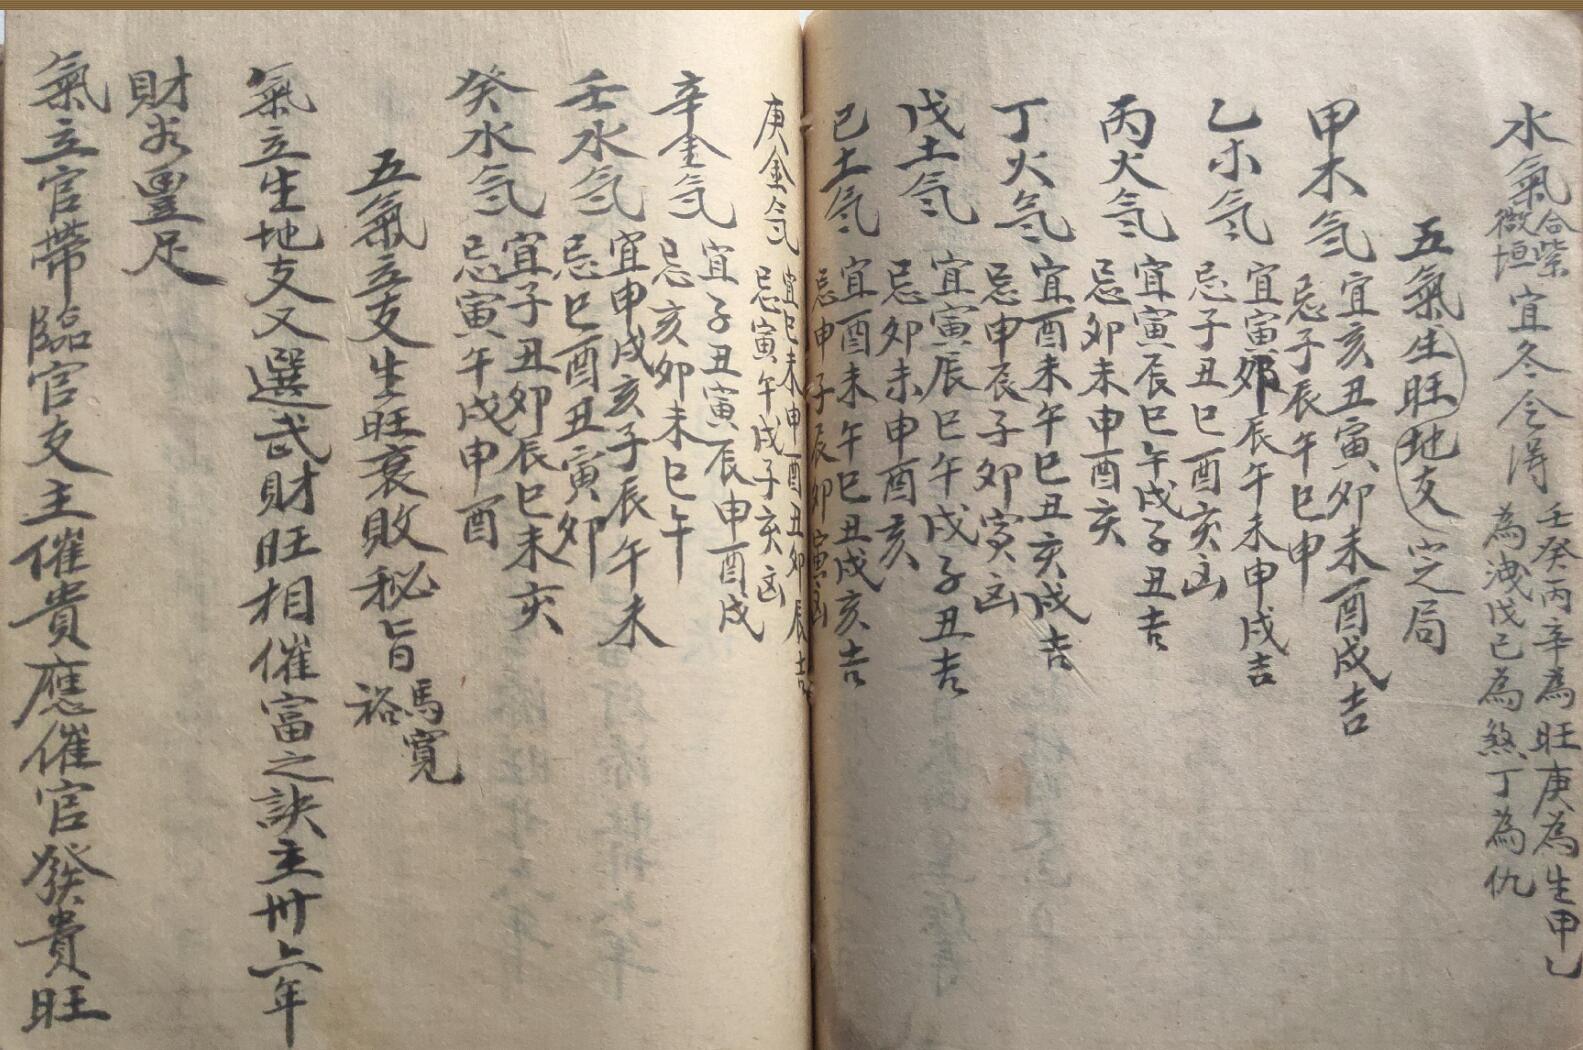 水氣合紫微垣宜冬令得壬癸丙辛為旺庚為生甲乙為洩戊己為煞丁為仇
五氣生旺地支定之局
甲木氣宜亥丑寅卯未酉戌吉
忌子辰午巳申
乙木氣宜寅卯辰午未申戌吉
忌子丑巳酉亥凶
丙火氣宜寅辰巳午戌子丑吉
忌卯未申酉亥
丁火氣宜酉未午巳丑亥戌吉
忌申辰子卯寅凶
戊土氣宜寅辰巳午戌子丑吉
忌卯未申酉亥
己土氣宜酉未午巳丑戌亥吉
忌申子辰卯寅凶
庚金氣宜巳未申酉丑卯辰吉
忌寅午戌子亥凶
辛金氣宜子丑寅辰申酉戌
忌亥卯未巳午
壬水氣宜申戌亥子辰午未
忌巳酉丑寅卯
癸水氣宜子丑卯辰巳未亥
忌寅午戌申酉
五氣立支生旺衰敗秘旨馬寬裕
氣立生地支又選武財旺相催富之訣主卅六年
財必豐足
氣立官帶臨官支主催貴應催官發貴旺